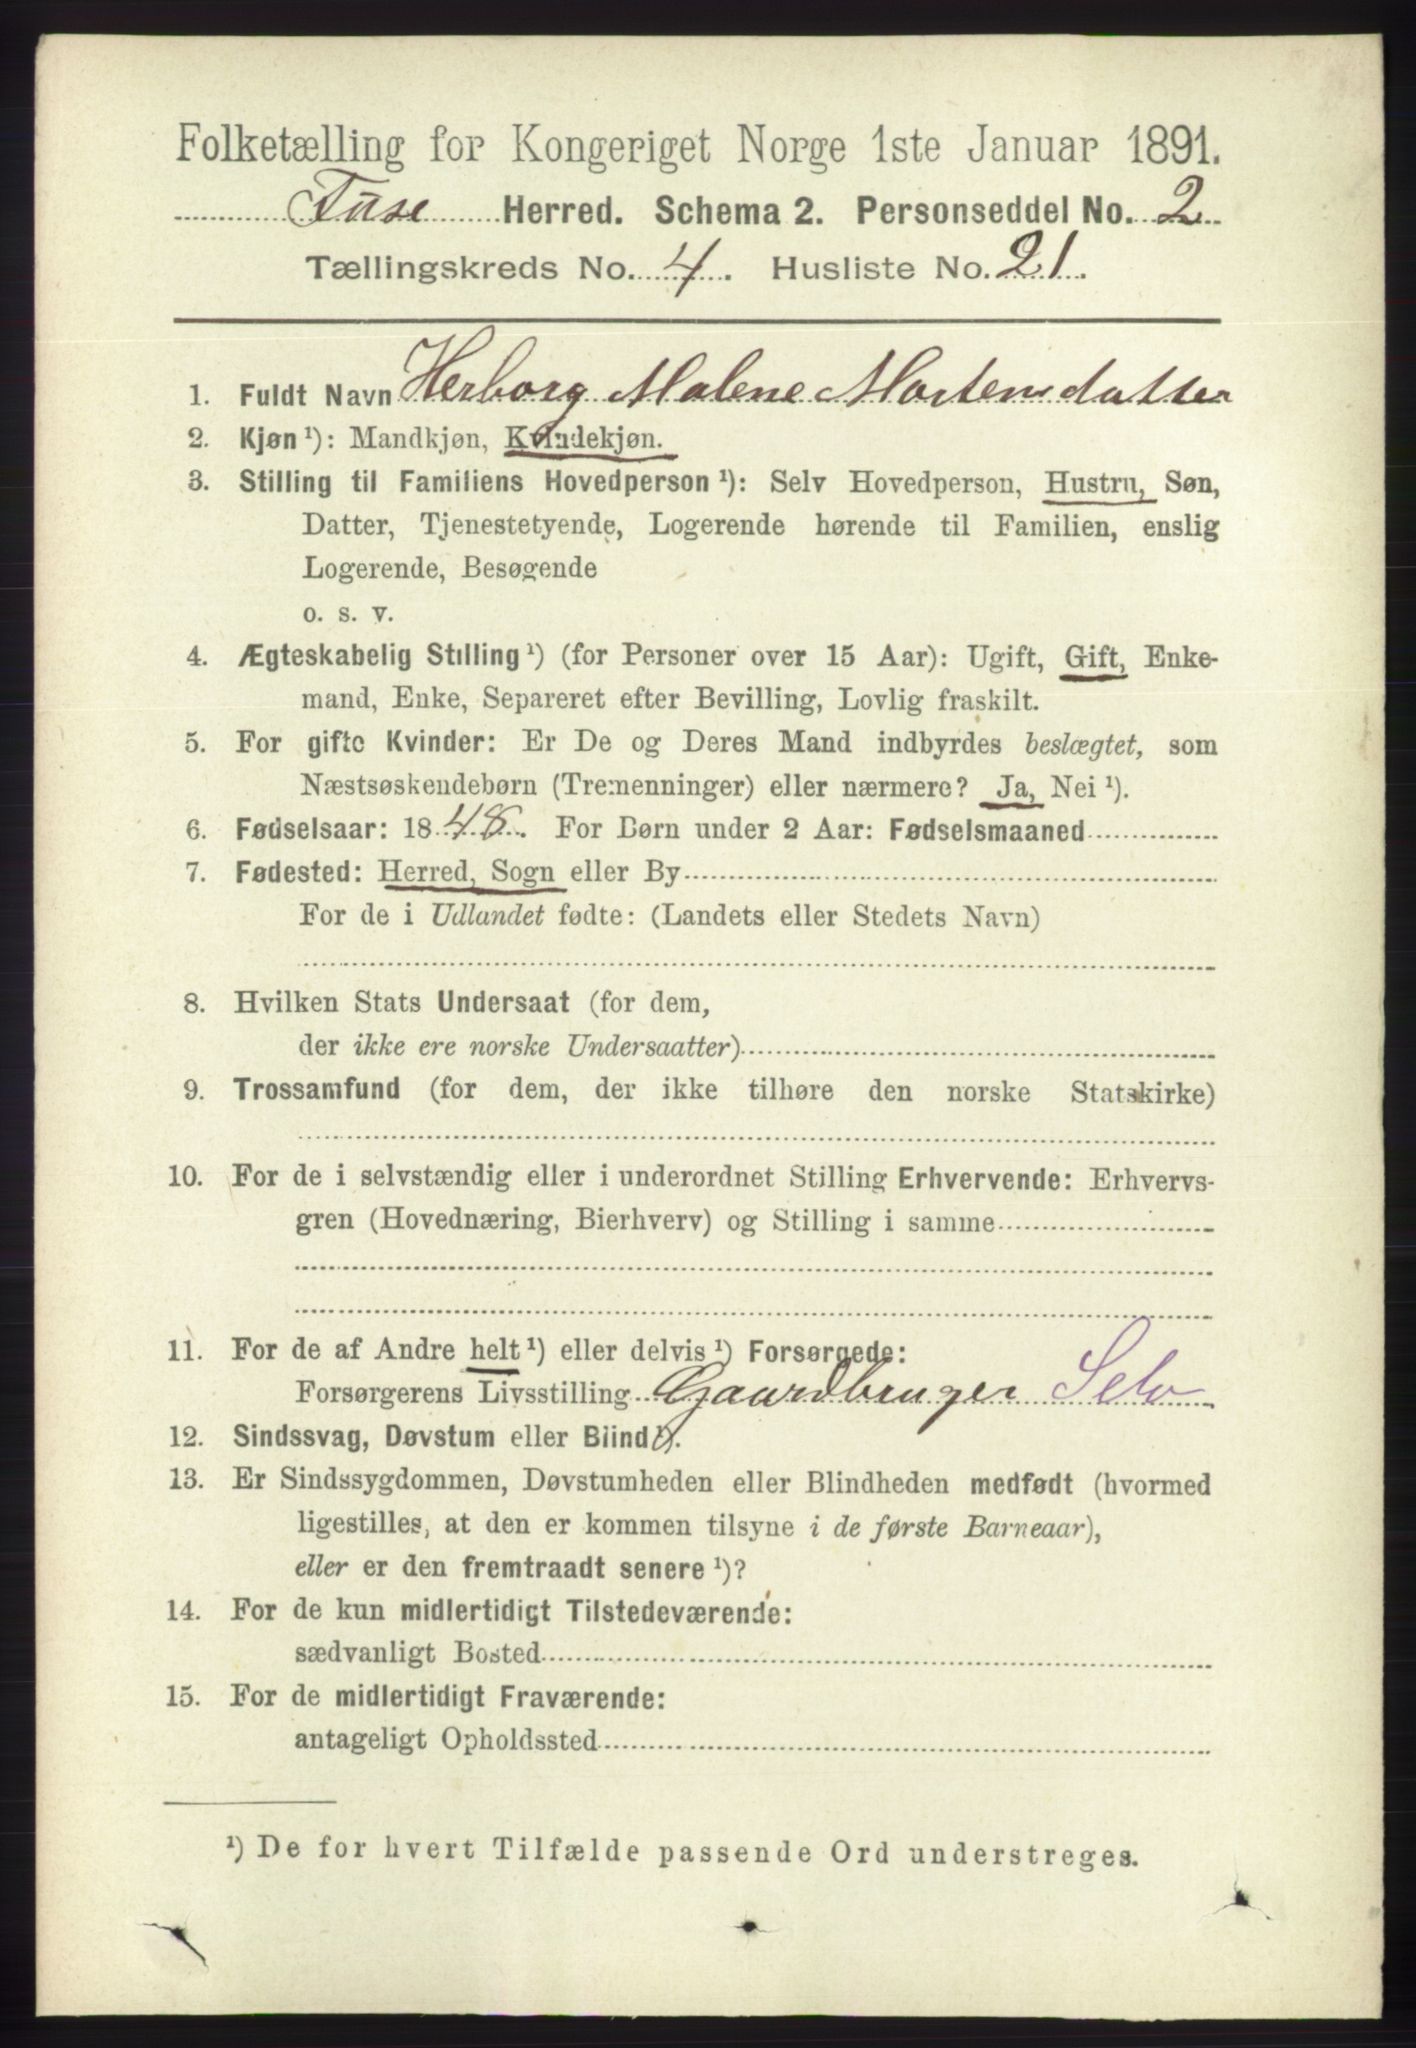 Folketælling for Kongeriget Norge 1ste Januar 1891.
Fuse Herred. Schema 2. Personseddel No. 2
Tællingskreds No. 4. Husliste No. 21.
1. Fuldt Navn Herborg Malene Mortensdatter
2. Kjøn ¹): Mandkjøn, Kvindekjøn.
3. Stilling til Familiens Hovedperson ¹): Selv Hovedperson, Hustru, Søn,
Datter, Tjenestetyende, Logerende hørende til Familien, enslig
Logerende, Besøgende
o. s. v.
4. Ægteskabelig Stilling ¹) (for Personer over 15 Aar): Ugift, Gift, Enke-
mand, Enke, Separeret efter Bevilling, Lovlig fraskilt.
5. For gifte Kvinder: Er De og Deres Mand indbyrdes beslægtet, som
Næstsøskendebørn (Tremenninger) eller nærmere? Ja, Nei ¹).
6. Fødselsaar: 1848. For Børn under 2 Aar: Fødselsmaaned
7. Fødested: Herred, Sogn eller By
For de i Udlandet fødte: (Landets eller Stedets Navn)
8. Hvilken Stats Undersaat (for dem,
der ikke ere norske Undersaatter)
9. Trossamfund (for dem, der ikke tilhøre den norske Statskirke)
10. For de i selvstændig eller i underordnet Stilling Erhvervende: Erhvervs-
gren (Hovednæring, Bierhverv) og Stilling i samme
11. For de af Andre helt ¹) eller delvis ¹) Forsørgede:
Forsørgerens Livsstilling Gaardbruger Selv
12. Sindssvag, Døvstum eller Blind ¹).
13. Er Sindssygdommen, Døvstumheden eller Blindheden medfødt (hvormed
ligestilles, at den er kommen tilsyne i de første Barneaar),
eller er den fremtraadt senere ¹)?
14. For de kun midlertidigt Tilstedeværende:
sædvanligt Bosted
15. For de midlertidigt Fraværende:
antageligt Opholdssted
¹) De for hvert Tilfælde passende Ord understreges.